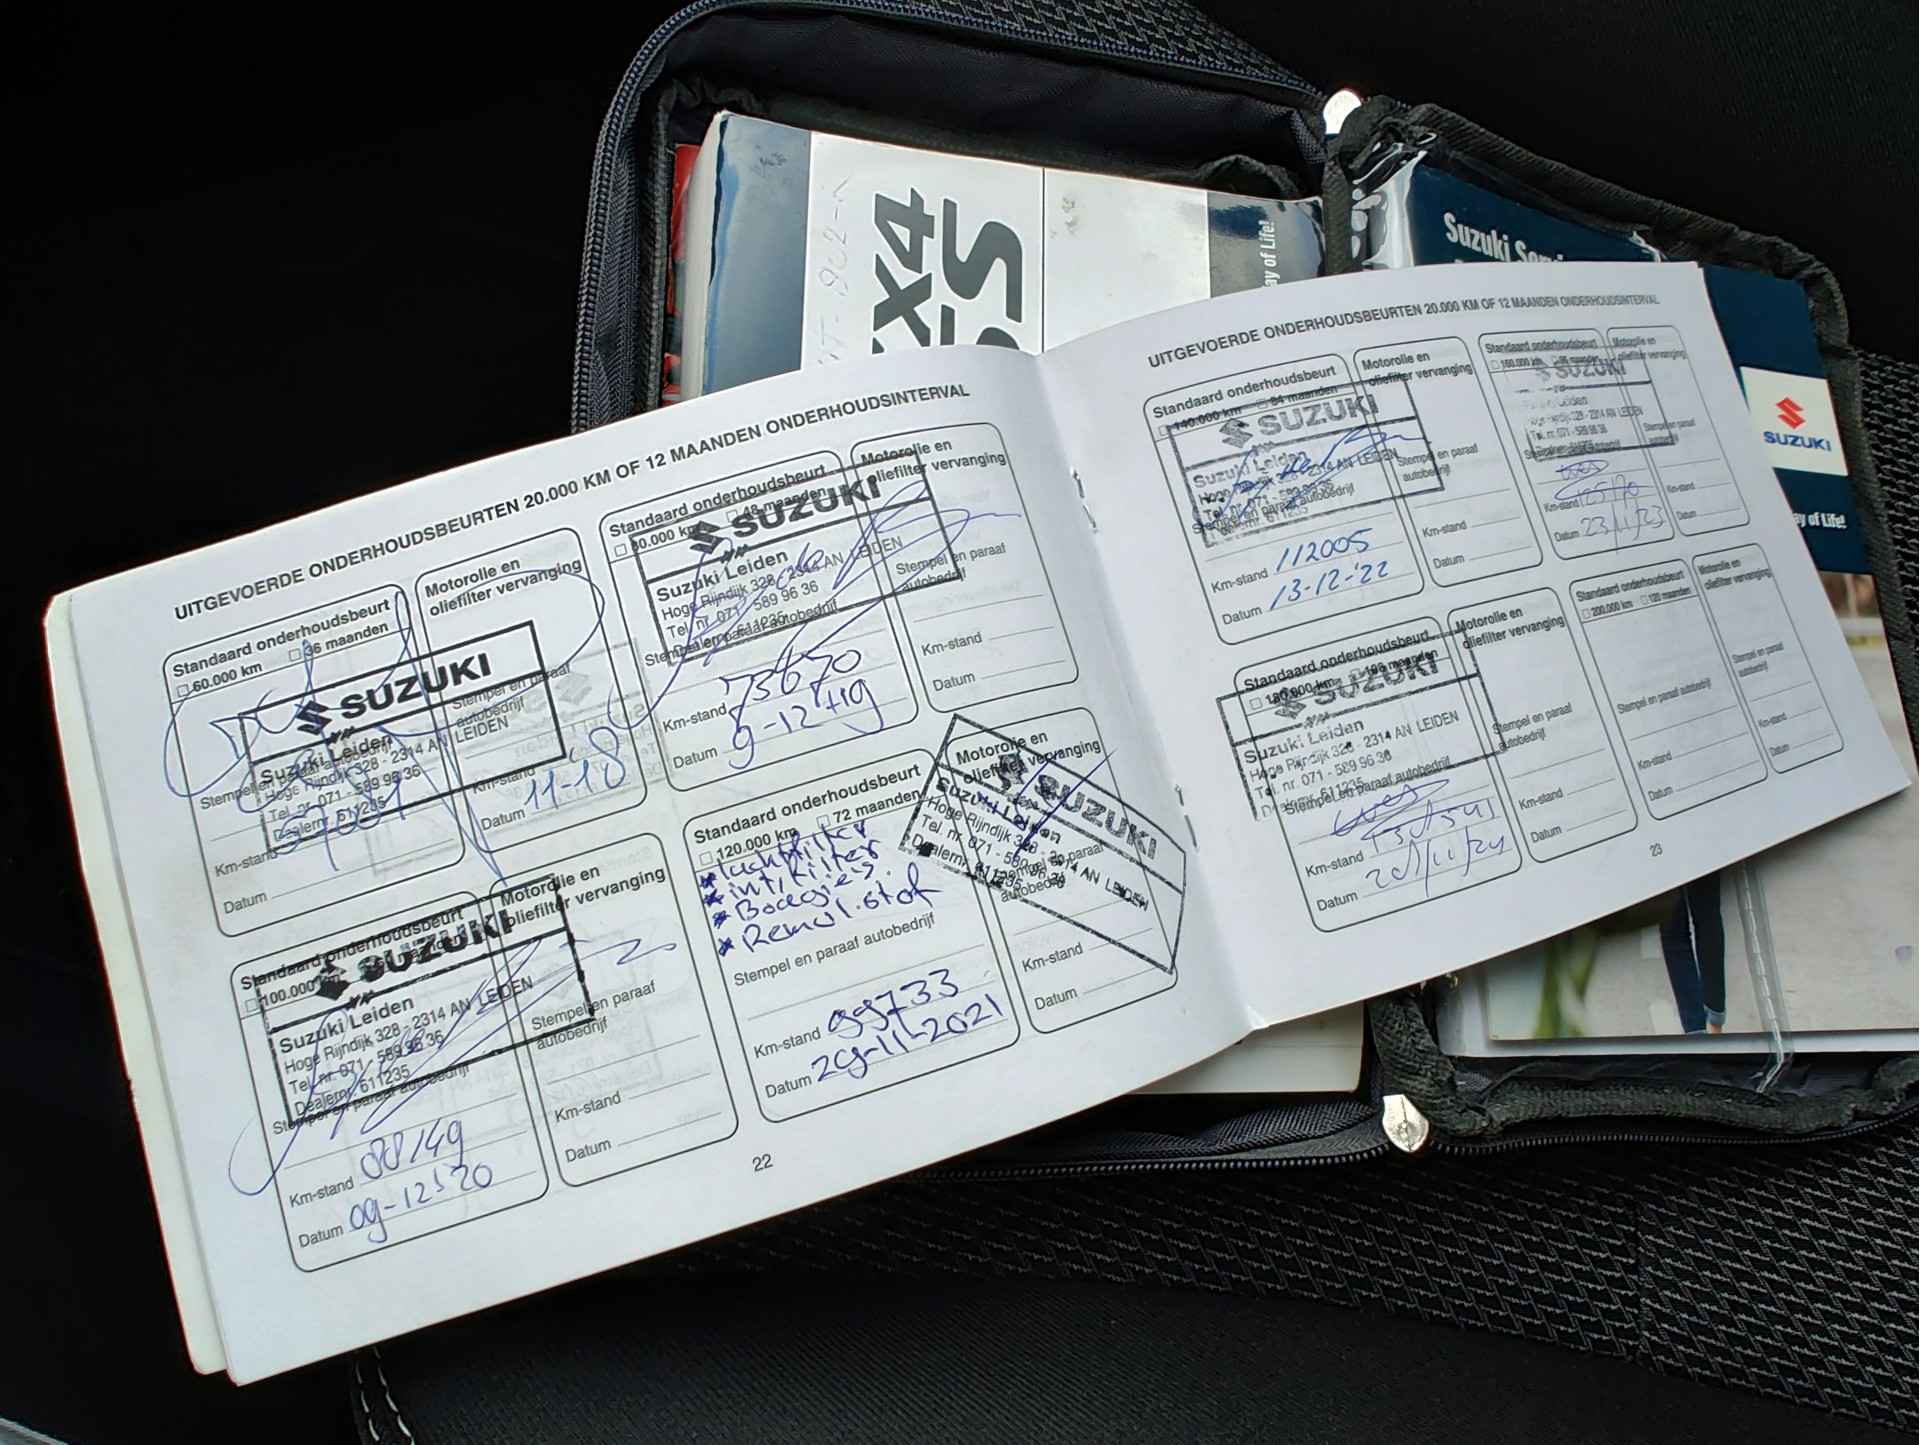 SX4
Suzuki
SUZUKI
ay of Life!
ay of Life!
UITGEVOERDE ONDERHOUDSBEURTEN 20.000 KM OF 12 MAANDEN ONDERHOUDSINTERVAL
Standaard onderhoudsbeurt
☐ 60.000 km ☐ 36 maanden
Motorolie en
oliefilter vervanging
SUZUKI
Suzuki Leiden
Hoge Rijndijk 328 - 2314 AN LEIDEN
Tel. nr. 071 - 589 96 36
Dealernr. 611235
Stempel en paraaf autobedrijf
Km-stand
Datum
Stempel en paraaf
autobedrijf
Km-stand
Datum 11-18
Standaard onderhoudsbeurt
☐ 80.000 km ☐ 48 maanden
Motorolie en
oliefilter vervanging
SUZUKI
Suzuki Leiden
Hoge Rijndijk 328 - 2314 AN LEIDEN
Tel. nr. 071 - 589 96 36
Stempel en paraaf autobedrijf
Km-stand 73670
Datum
Stempel en paraaf
autobedrijf
Km-stand
Datum
Standaard onderhoudsbeurt
☐ 100.000 km
Motorolie en
oliefilter vervanging
SUZUKI
Suzuki Leiden
Hoge Rijndijk 328 - 2314 AN LEIDEN
Tel. nr. 071 - 589 96 36
Dealernr. 611235
Stempel en paraaf autobedrijf
Km-stand 88149
Datum 09-12-'20
Stempel en paraaf
autobedrijf
Km-stand
Datum
Standaard onderhoudsbeurt
☐ 120.000 km ☐ 72 maanden
* luchtfilter
* int. filter
* Boegies.
* Remvl.stof
Stempel en paraaf autobedrijf
Km-stand 99733
Datum 29-11-2021
Motorolie en
oliefilter vervanging
SUZUKI
Suzuki Leiden
Hoge Rijndijk 328 - 2314 AN LEIDEN
Tel. nr. 071 - 589 96 36
Dealernr. 611235
Stempel en paraaf
autobedrijf
Km-stand
Datum
22
UITGEVOERDE ONDERHOUDSBEURTEN 20.000 KM OF 12 MAANDEN ONDERHOUDSINTERVAL
Standaard onderhoudsbeurt
☐ 140.000 km ☐ 84 maanden
Motorolie en
oliefilter vervanging
SUZUKI
Suzuki Leiden
Hoge Rijndijk 328 - 2314 AN LEIDEN
Tel. nr. 071 - 589 96 36
Dealernr. 611235
Stempel en paraaf autobedrijf
Km-stand 112005
Datum 13-12-'22
Stempel en paraaf
autobedrijf
Km-stand
Datum
Standaard onderhoudsbeurt
☐ 160.000 km ☐ 96 maanden
Motorolie en
oliefilter vervanging
SUZUKI
Leiden
328 - 2314 AN LEIDEN
Tel. nr. 071 - 589 96 36
Stempel en paraaf autobedrijf
Km-stand
Datum 23/11/23
Stempel en paraaf
autobedrijf
Km-stand
Datum
Standaard onderhoudsbeurt
☐ 180.000 km ☐ 108 maanden
Motorolie en
oliefilter vervanging
SUZUKI
Suzuki Leiden
Hoge Rijndijk 328 - 2314 AN LEIDEN
Tel. nr. 071 - 589 96 36
Dealernr. 611235
Stempel en paraaf autobedrijf
Km-stand
Datum
Stempel en paraaf
autobedrijf
Km-stand
Datum
Standaard onderhoudsbeurt
☐ 200.000 km ☐ 120 maanden
Motorolie en
oliefilter vervanging
Stempel en paraaf autobedrijf
Km-stand
Datum
Stempel en paraaf
autobedrijf
Km-stand
Datum
23